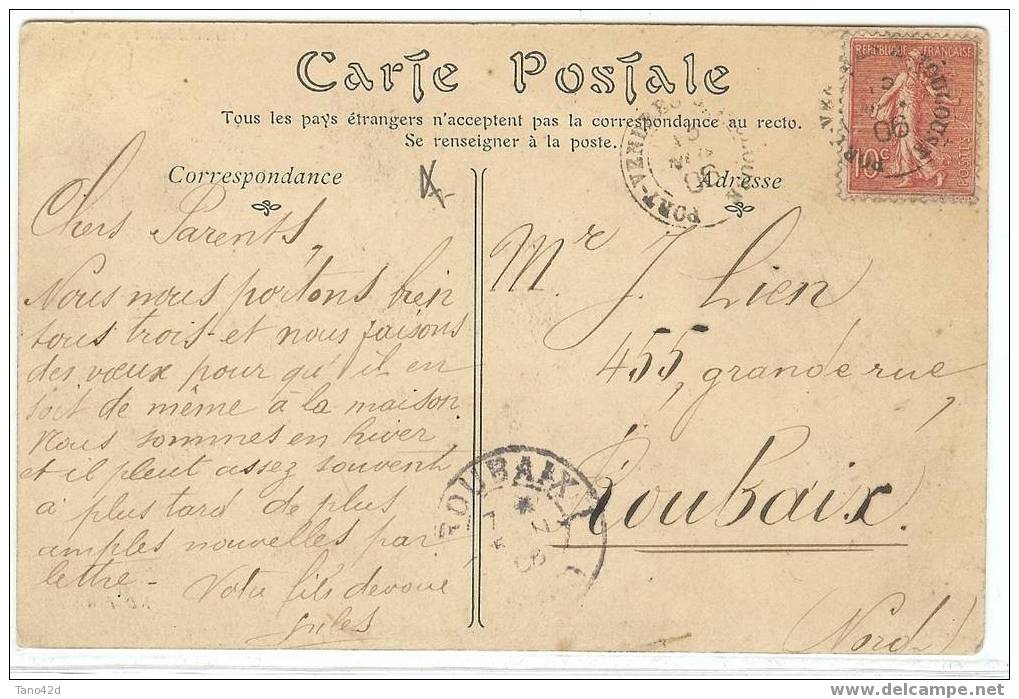 Carte Postale
Tous les pays étrangers n'acceptent pas la correspondance au recto.
Se renseigner à la poste.
Correspondance
Adresse
REPUBLIQUE FRANÇAISE
10c
POSTES
PORT-VENDRES
06
Chers Parents,
Nous nous portons bien
tous trois et nous faisons
des vœux pour qu'il en
soit de même à la maison
Nous sommes en hiver
et il pleut assez souvent
à plus tard de plus
amples nouvelles par
lettre -
Votre fils devoué
Jules
Mr J. Lien
455, grande rue,
Roubaix.
(Nord)
ROUBAIX
Tano42d
www.delcampe.net